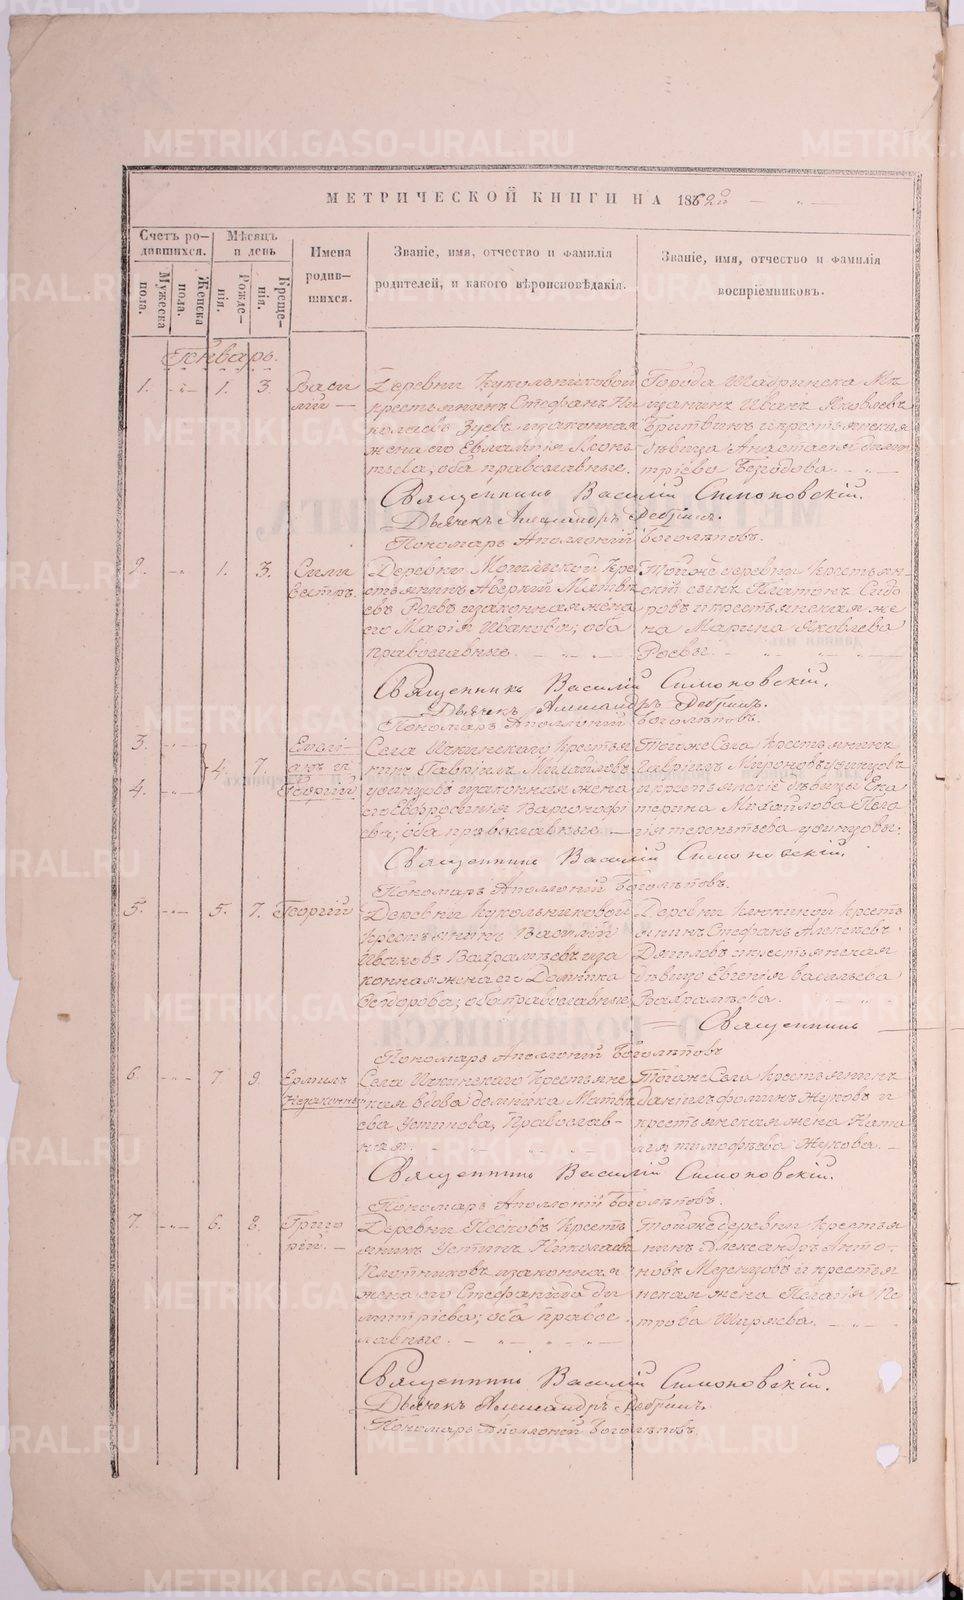 МЕТРИЧЕСКОЙ КНИГИ НА 1862й
Счетъ ро-
дившихся.
Мужеска
пола.
Женска
пола.
Мѣсяцъ
и день
Рожде-
нія.
Креще-
нія.
Имена
родив-
шихся.
Званіе, имя, отчество и фамилія
родителей, и какого вѣроисповѣданія.
Званіе, имя, отчество и фамилія
воспріемниковъ.
Генварь.
1. 1. 3.
Васи
лій —
Деревни Кукольниковой
крестьянинъ Стефанъ Ни
колаевъ Зуевъ изаконная
жена его Евлампія Леонть
тьева, оба православные.
Города Шадринска Мѣ
щанинъ Иванъ Яковлевъ
Бритвинъ и крестьянская
дѣвица Анастасія Димит
тріева
Священникъ Василій Симоновскій.
Дьячекъ Александръ
Пономарь Аполлоній Боголѣповъ.
2. 1. 3.
Сили
вестръ.
Деревни Кре
стьянинъ Аверкій Матвѣ
евъ Роевъ изаконная жена
его Марія Иванова; оба
православные.
Тойже деревни крестьян-
скій сынъ Платонъ Сидо
ровъ и крестьянская же
на Марина Яковлева
Роевы.
Священникъ Василій Симоновскій.
Дьячекъ Александръ
Пономарь Аполлоній Боголѣповъ.
3.
4.
4. 7.
Георгій
Села Ичкинскаго крестья
нинъ Гавріилъ Михайловъ
изаконная жена
его Евфросинія Варсонофі
ева; оба православные. —
Тойже Села крестьянинъ
Гавріилъ Мироновъ
и крестьянскіе дѣвицы Ека
терина Михайлова Пела
гія терентьева
Священникъ Василій Симоновскій.
Пономарь Аполлоній Боголѣповъ.
5. 5. 7.
Георгій
Деревни Кукольниковой
Крестьянинъ Василій
Ивановъ Вахрамѣевъ иза
конная жена его Домника
Ѳедорова; оба православные
Деревни Крестья
янинъ Стефанъ Алексѣевъ
Дягилевъ и крестьянская
дѣвица Евгенія Васильева
Вахрамѣева.
Священникъ
Пономарь Аполлоній Боголѣповъ
6. 7. 9.
Ермилъ
Незаконный
Села Ичкинскаго крестьянс
кая вдова Домника Матвѣ
ева Устинова, Православ-
ная.
Тогоже Села крестьянинъ
Даніилъ Фоминъ Жуковъ и
крестьянская жена Ната
лія тимофѣева Жукова. —
Священникъ Василій Симоновскій.
Пономарь Аполлоній Боголѣповъ.
7. 6. 8.
Григо
рій. —
Деревни Песковъ Кресть
янинъ Устинъ Николаевъ
Плотниковъ изаконная
жена его Стефанида Ди
митріева; оба правос
лавные.
Тойже деревни Крестья
нинъ Александръ Анто-
новъ Мезенцовъ и крестья
нская жена Пелагія Пе
трова Ширяева.
Священникъ Василій Симоновскій.
Дьячекъ Александръ
Пономарь Аполлоній Боголѣповъ.
METRIKI.GASO-URAL.RU